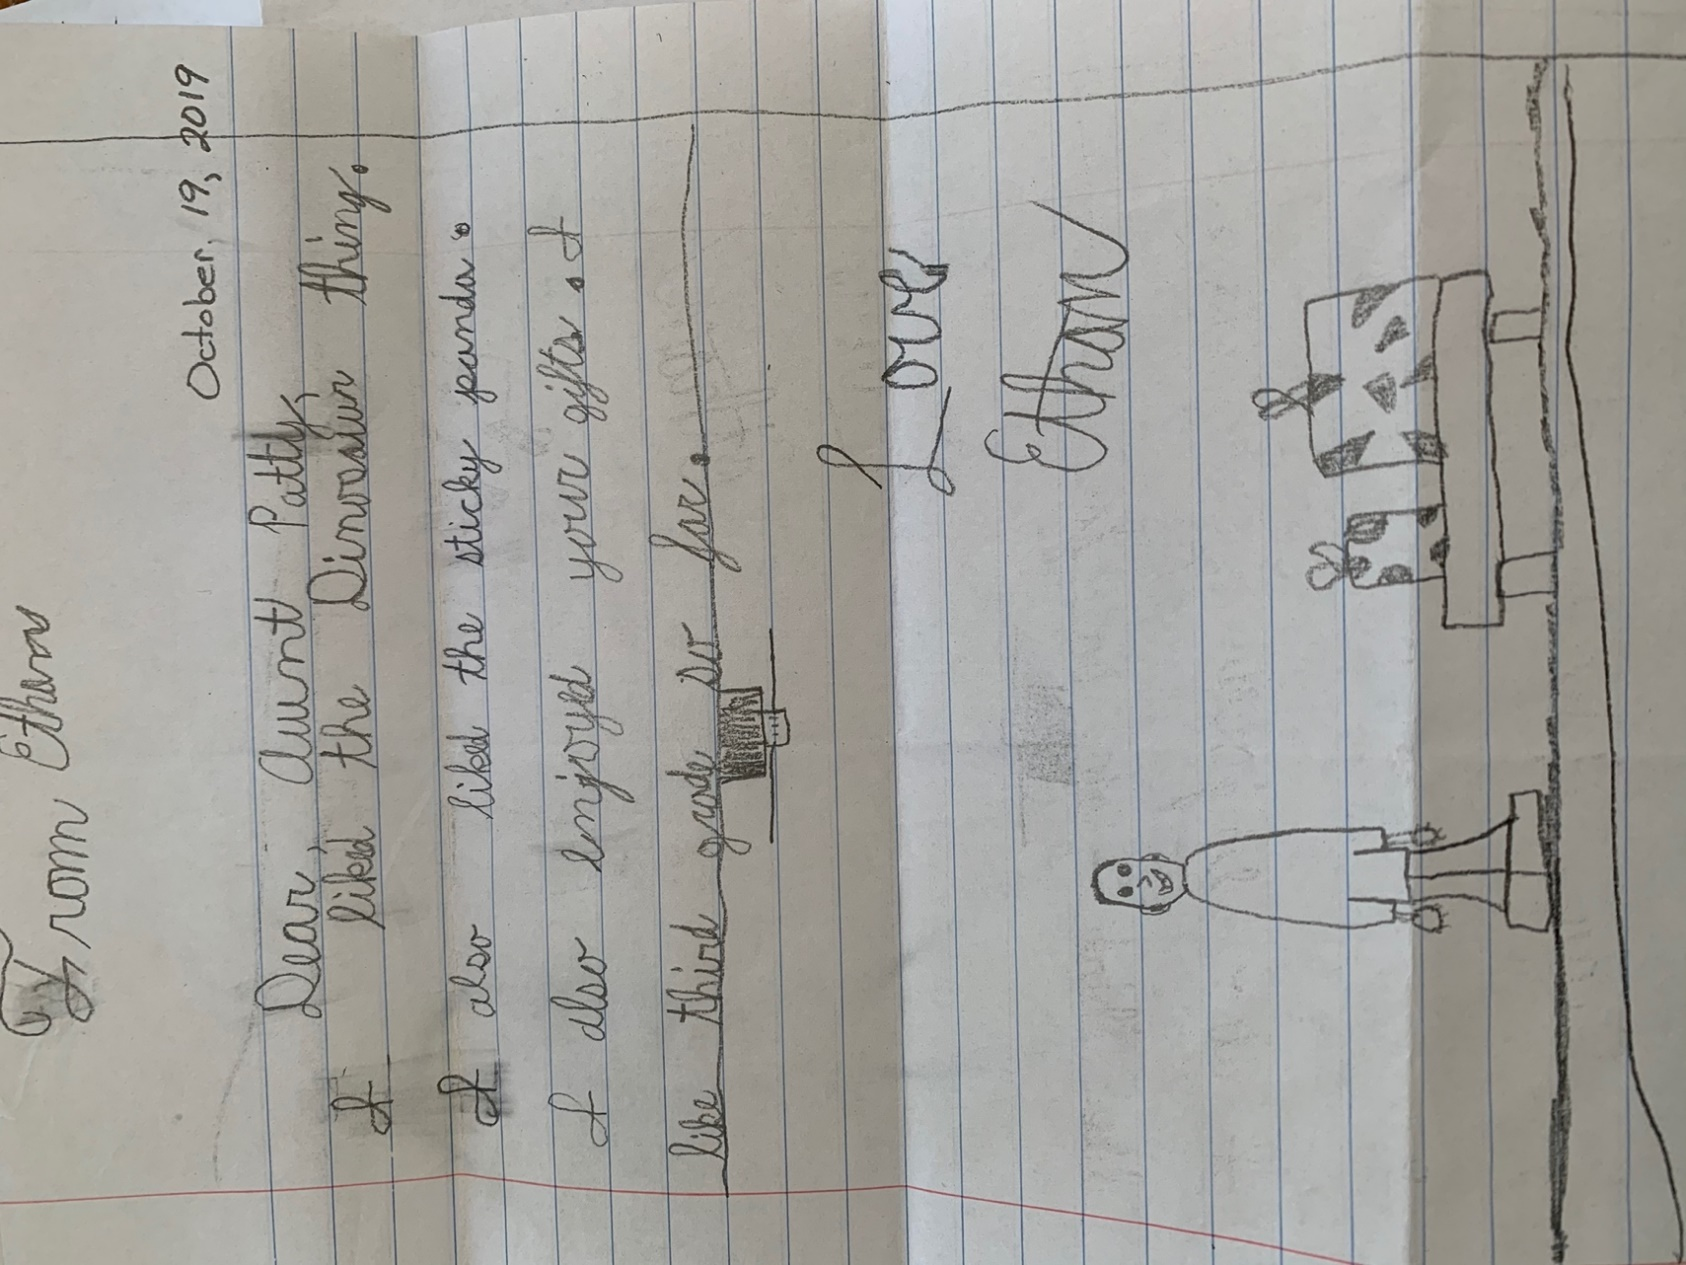 From Ethan
October, 19, 2019
Dear, Aunt Patty,
I liked the Dinosaur thing.
I also liked the sticky panda.
I also enjoyed your gifts. I
like third grade so far.
Love
Ethan